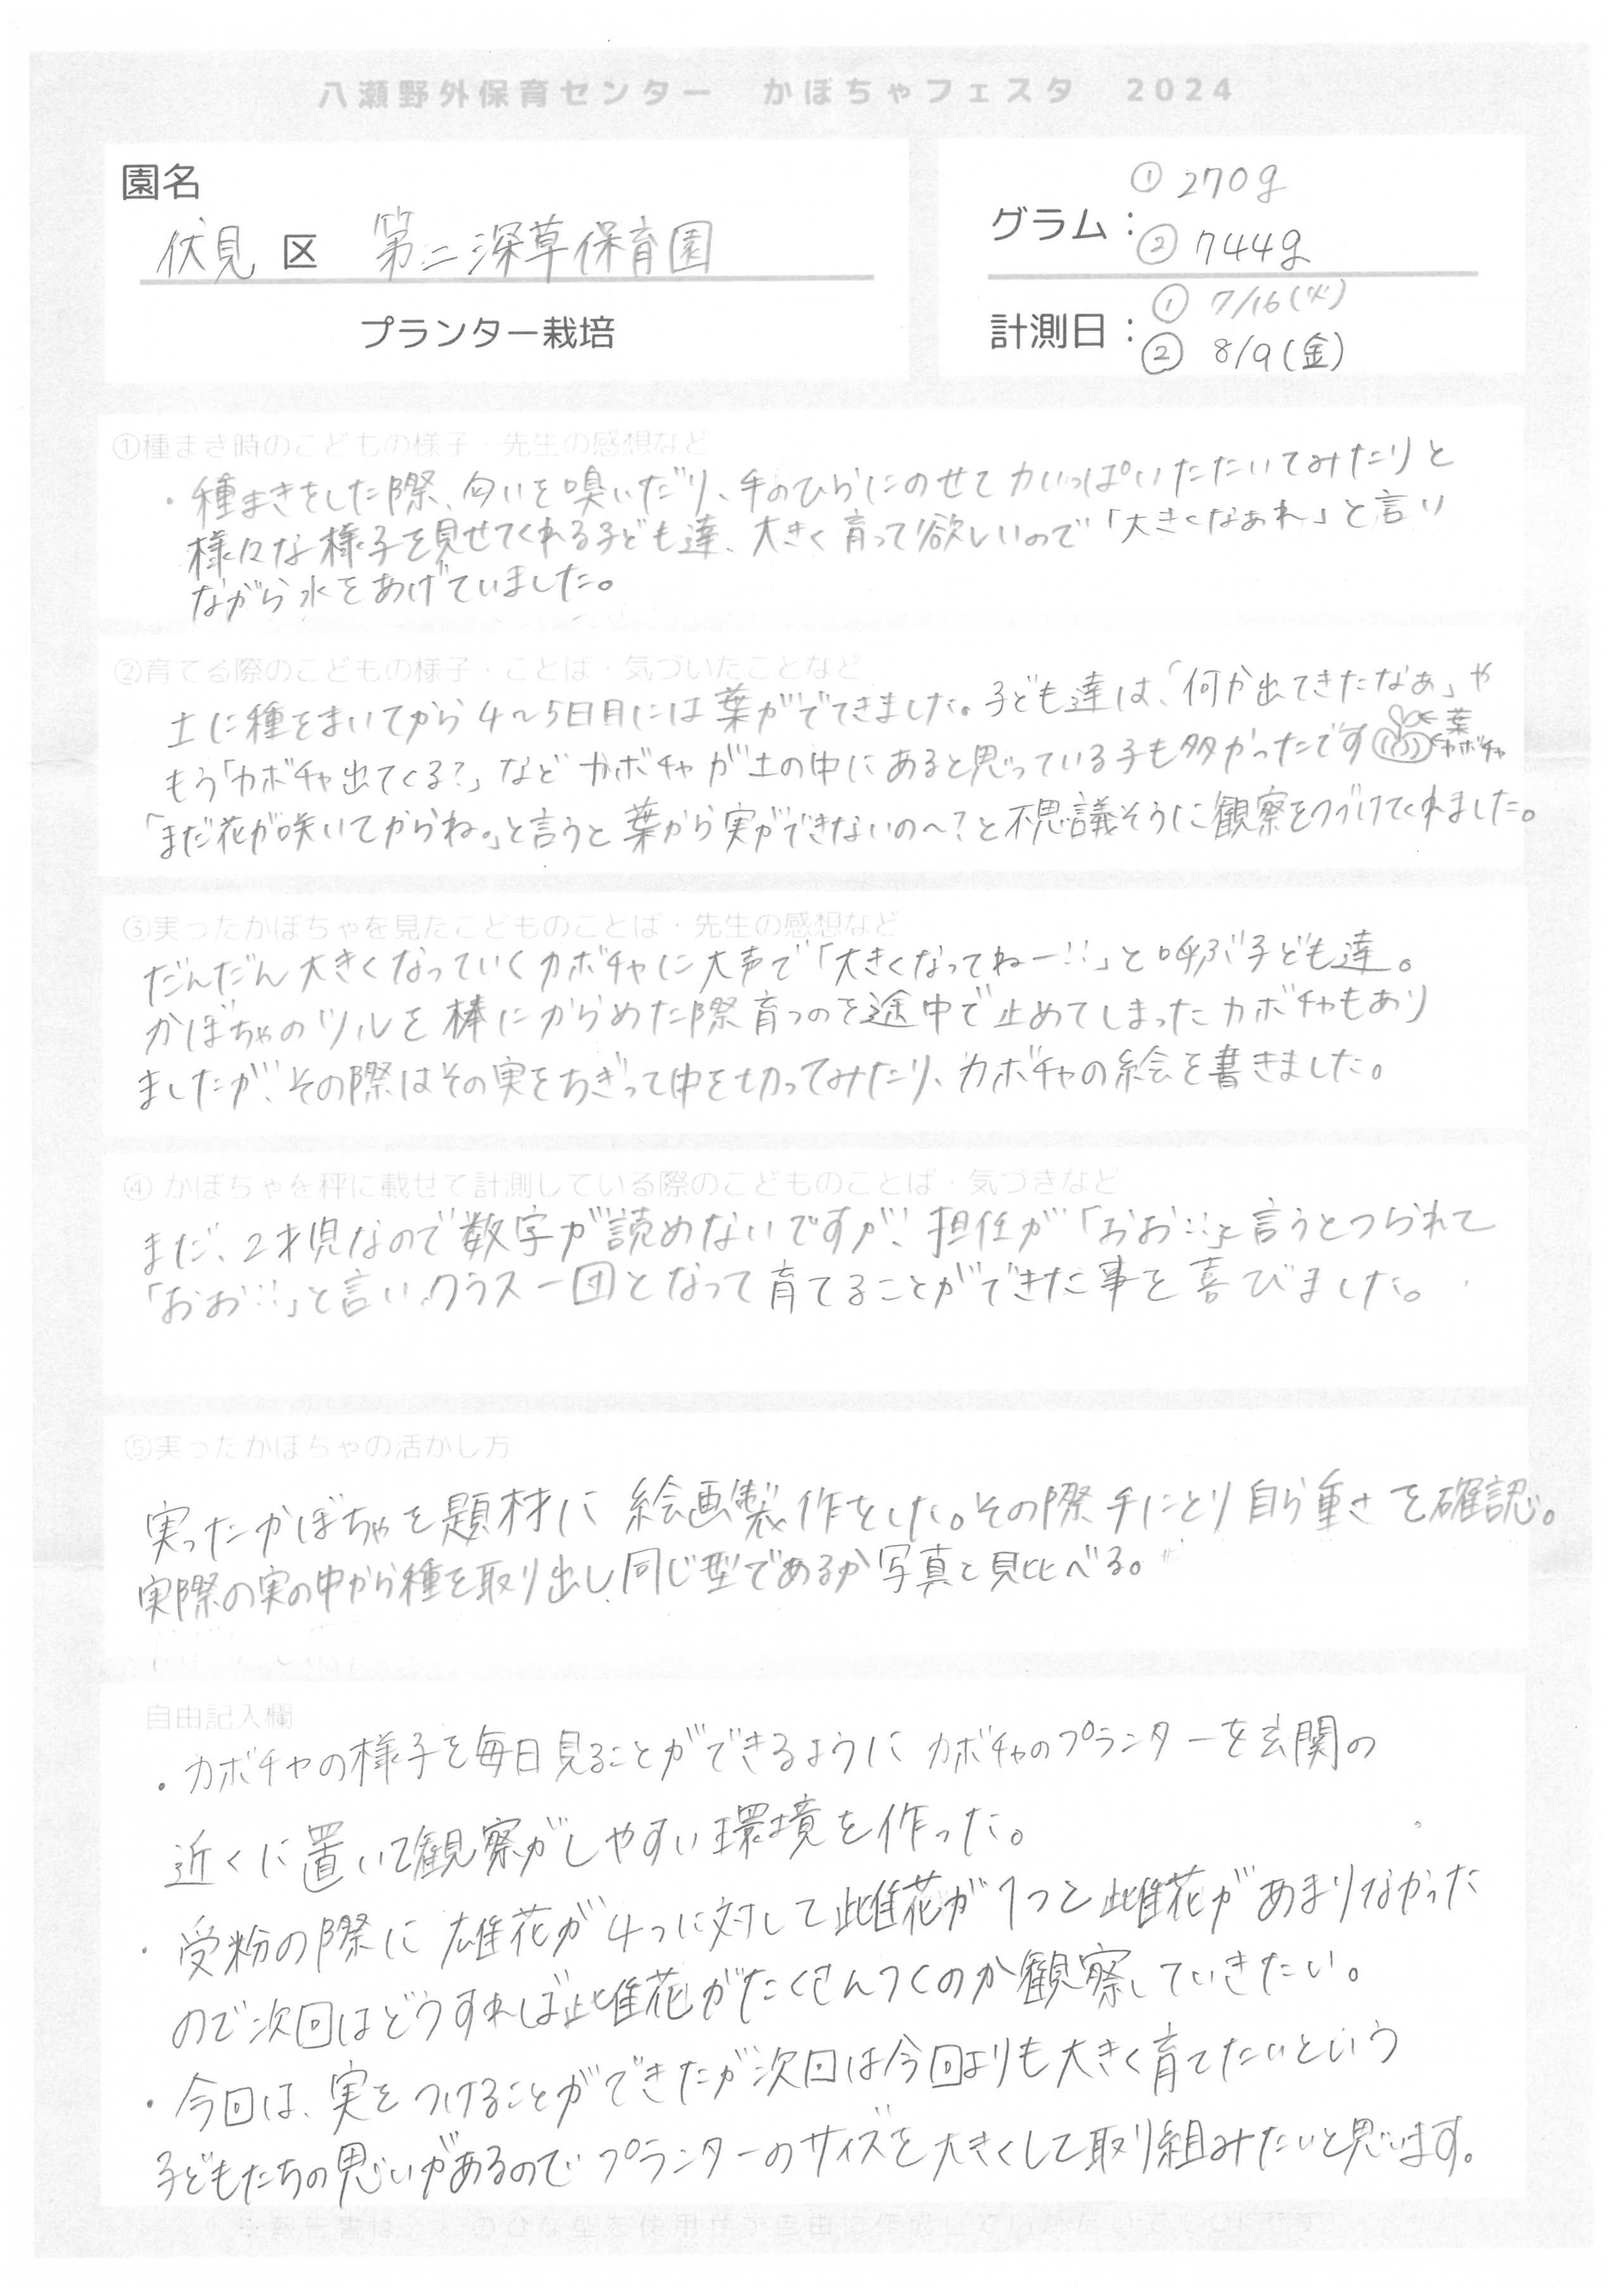 八瀬野外保育センター かぼちゃフェスタ 2024
園名
伏見 区 第二深草保育園
プランター栽培
グラム：
① 270g
② 744g
計測日：
① 7/16(火)
② 8/9(金)
①種まき時のこどもの様子・先生の感想など
・種まきをした際、匂いを嗅いだり、手のひらにのせて力いっぱいたたいてみたりと
様々な様子を見せてくれる子ども達、大きく育って欲しいので「大きくなあれ」と言い
ながら水をあげていました。
②育てる際のこどもの様子・ことば・気づいたことなど
土に種をまいてから4〜5日目には葉がでてきました。子ども達は、「何か出てきたなぁ」や
もう「カボチャ出てくる?」など カボチャが土の中にあると思っている子も多かったです
葉
カボチャ
「まだ花が咲いてからね。」と言うと葉から実ができないの〜?と不思議そうに観察をつづけてくれました。
③実ったかぼちゃを見たこどものことば・先生の感想など
だんだん大きくなっていくカボチャに大声で「大きくなってねー!!」と呼ぶ子ども達。
かぼちゃのツルを棒にからめた際育つのを途中で止めてしまったカボチャもあり
ましたが、その際はその実をちぎって中を切ってみたり、カボチャの絵を書きました。
④ かぼちゃを秤に載せて計測している際のこどものことば・気づきなど
まだ、2才児なので数字が読めないですが、担任が「おお!!」と言うとつられて
「おお!!」と言い、クラス一団となって育てることができた事を喜びました。
⑤実ったかぼちゃの活かし方
実ったかぼちゃを題材に絵画製作をした。その際手にとり自ら重さを確認。
実際の実の中から種を取り出し同じ型であるか写真と見比べる。
自由記入欄
・カボチャの様子を毎日見ることができるようにカボチャのプランターを玄関の
近くに置いて観察がしやすい環境を作った。
・受粉の際に 雄花が4つに対して雌花が1つと雌花があまりなかった
ので次回はどうすれば雌花がたくさんつくのか観察していきたい。
・今回は、実をつけることができたが次回は今回よりも大きく育てたいという
子どもたちの思いがあるのでプランターのサイズを大きくして取り組みたいと思います。